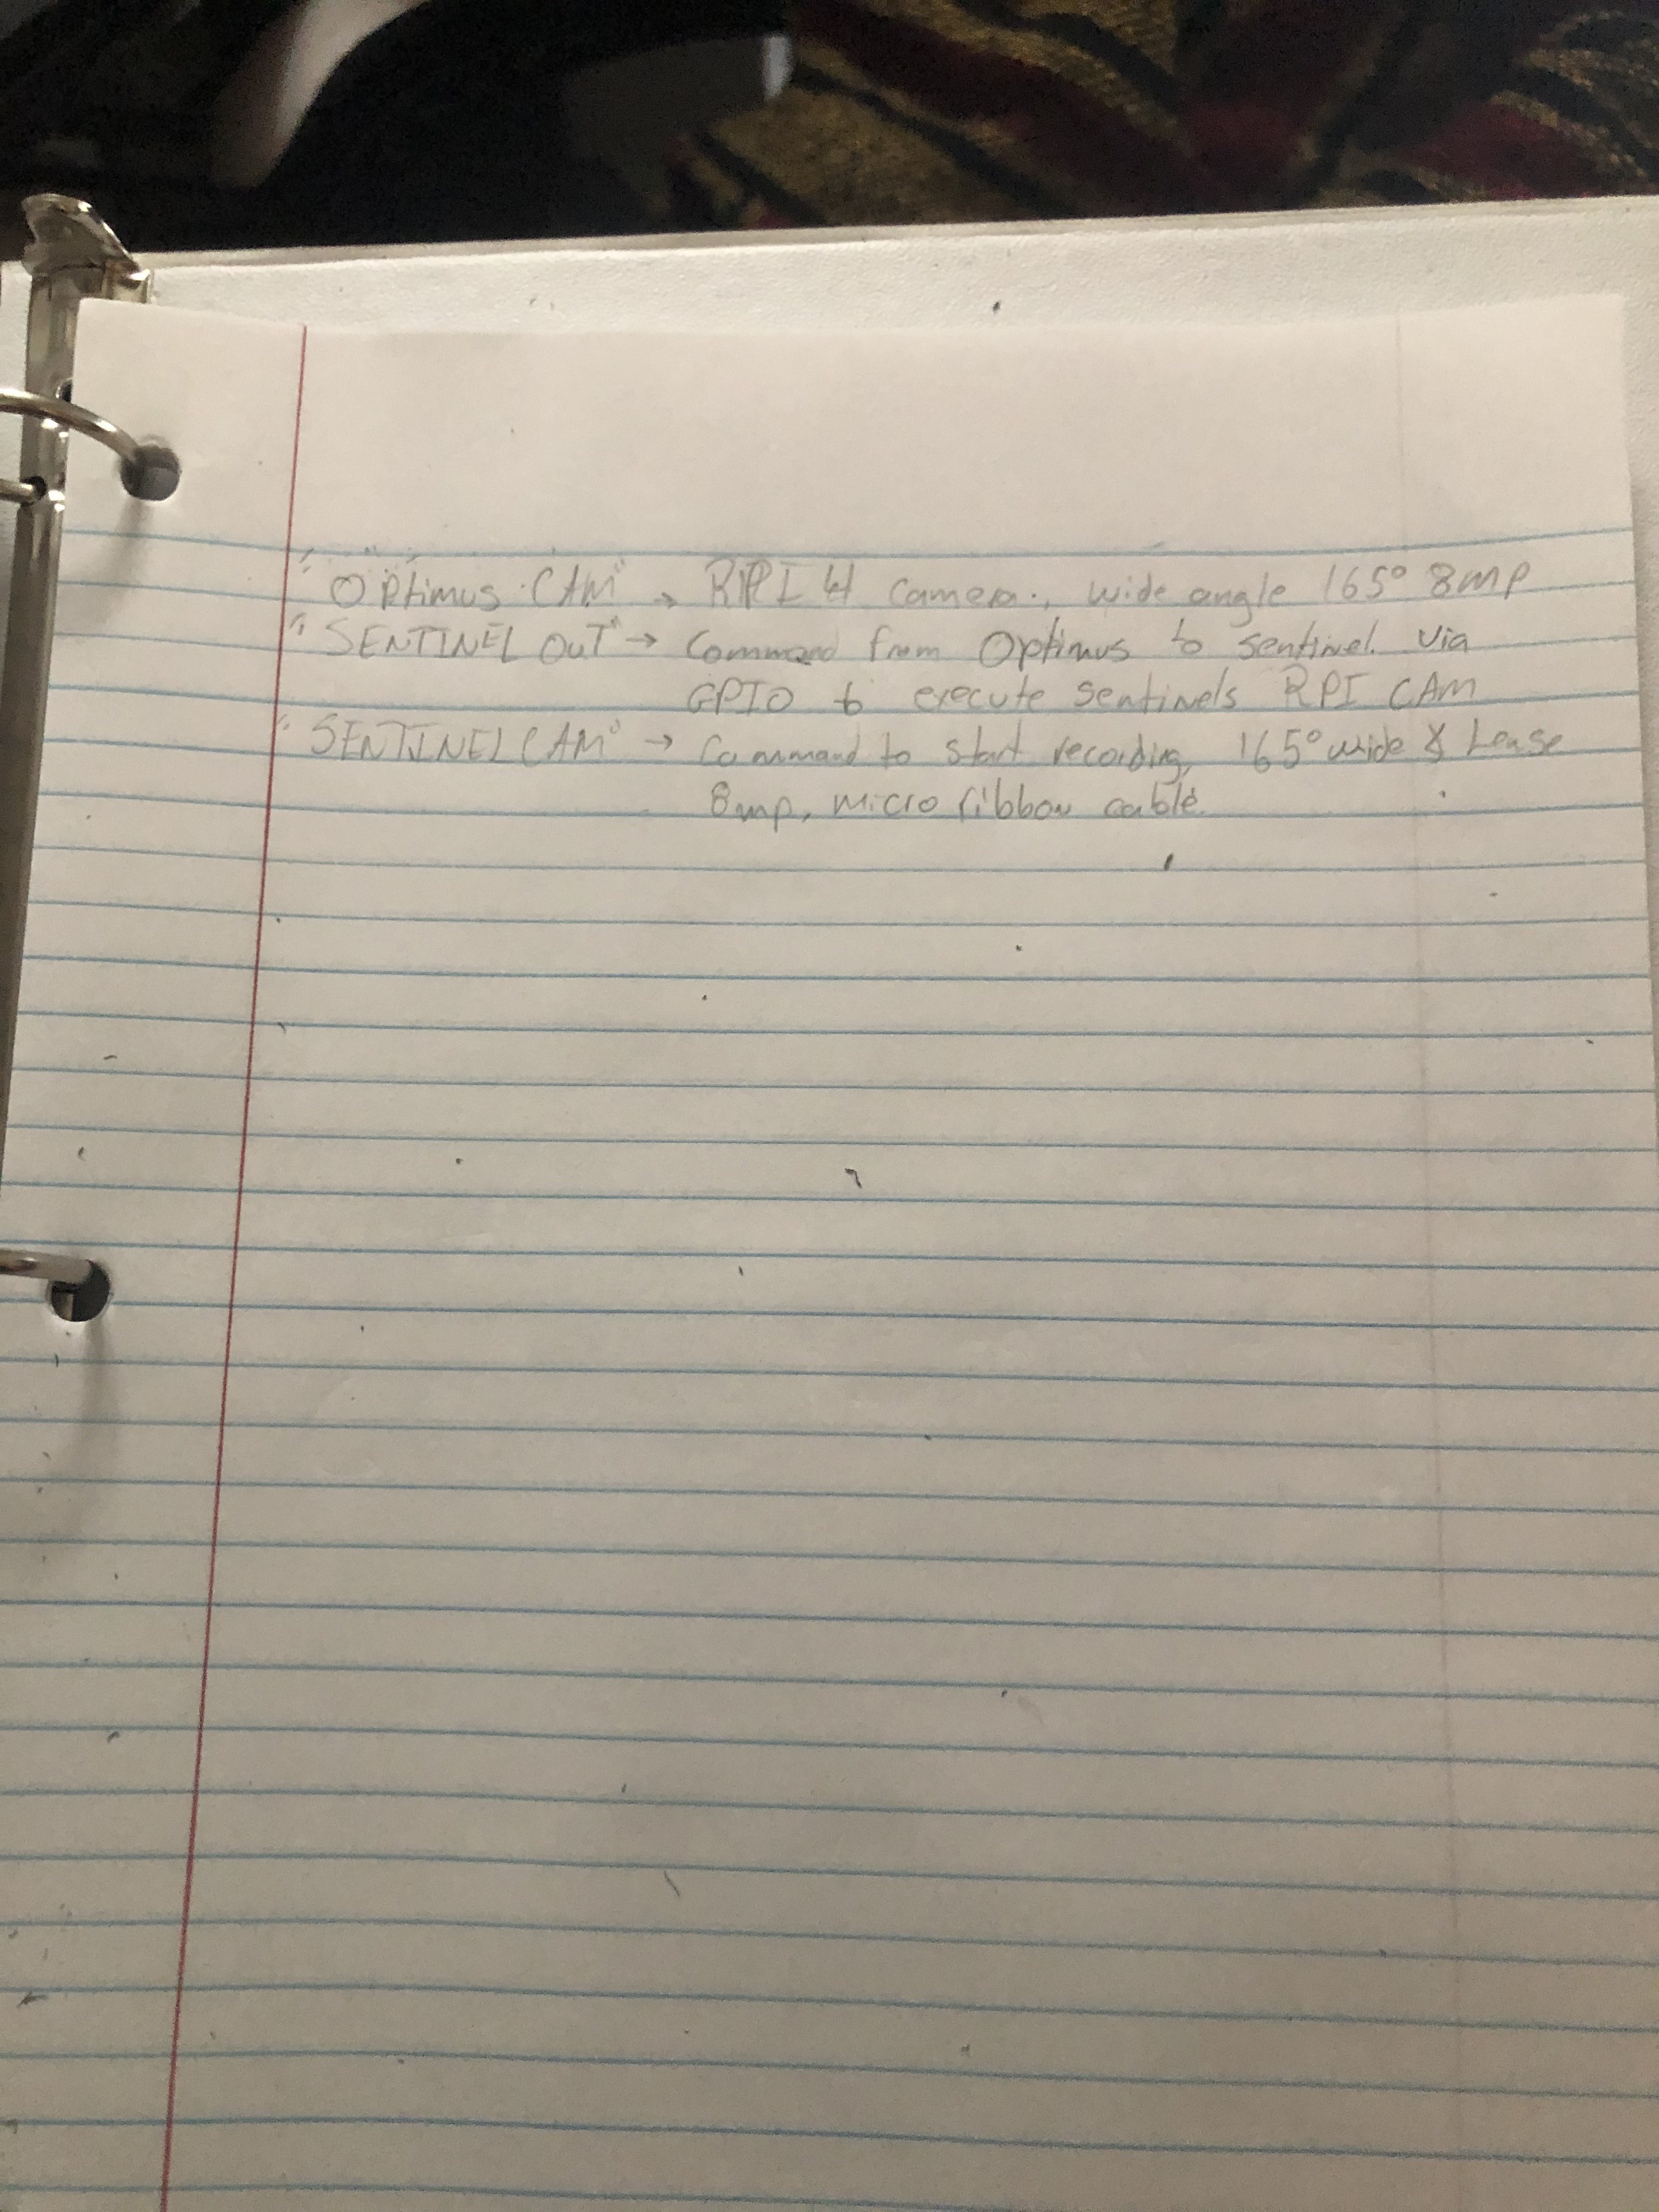 "Optimus CAM" → RPI 4 Camera, wide angle 165° 8mp
"SENTINEL OUT" → Command from Optimus to sentinel via
GPIO to execute sentinels RPI CAM
"SENTINEL CAM" → Command to start recording, 165° wide & Lease
8mp, micro ribbon cable.